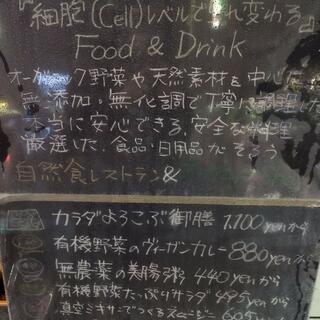 『細胞(Cell)レベルで生れ変わる』
Food & Drink
オーガニック野菜や天然素材を中心に
無添加・無化調で丁寧に
本当に安心できる、安全な
厳選した、食品・日用品がそろう
自然食レストラン&
カラダよろこぶ御膳 1,100yenから
有機野菜のヴィーガンカレー 880yenから
無農薬の美腸粥 440yenから
有機野菜たっぷりサラダ 495yenから
真空ミキサーでつくるスムージー 605yenから